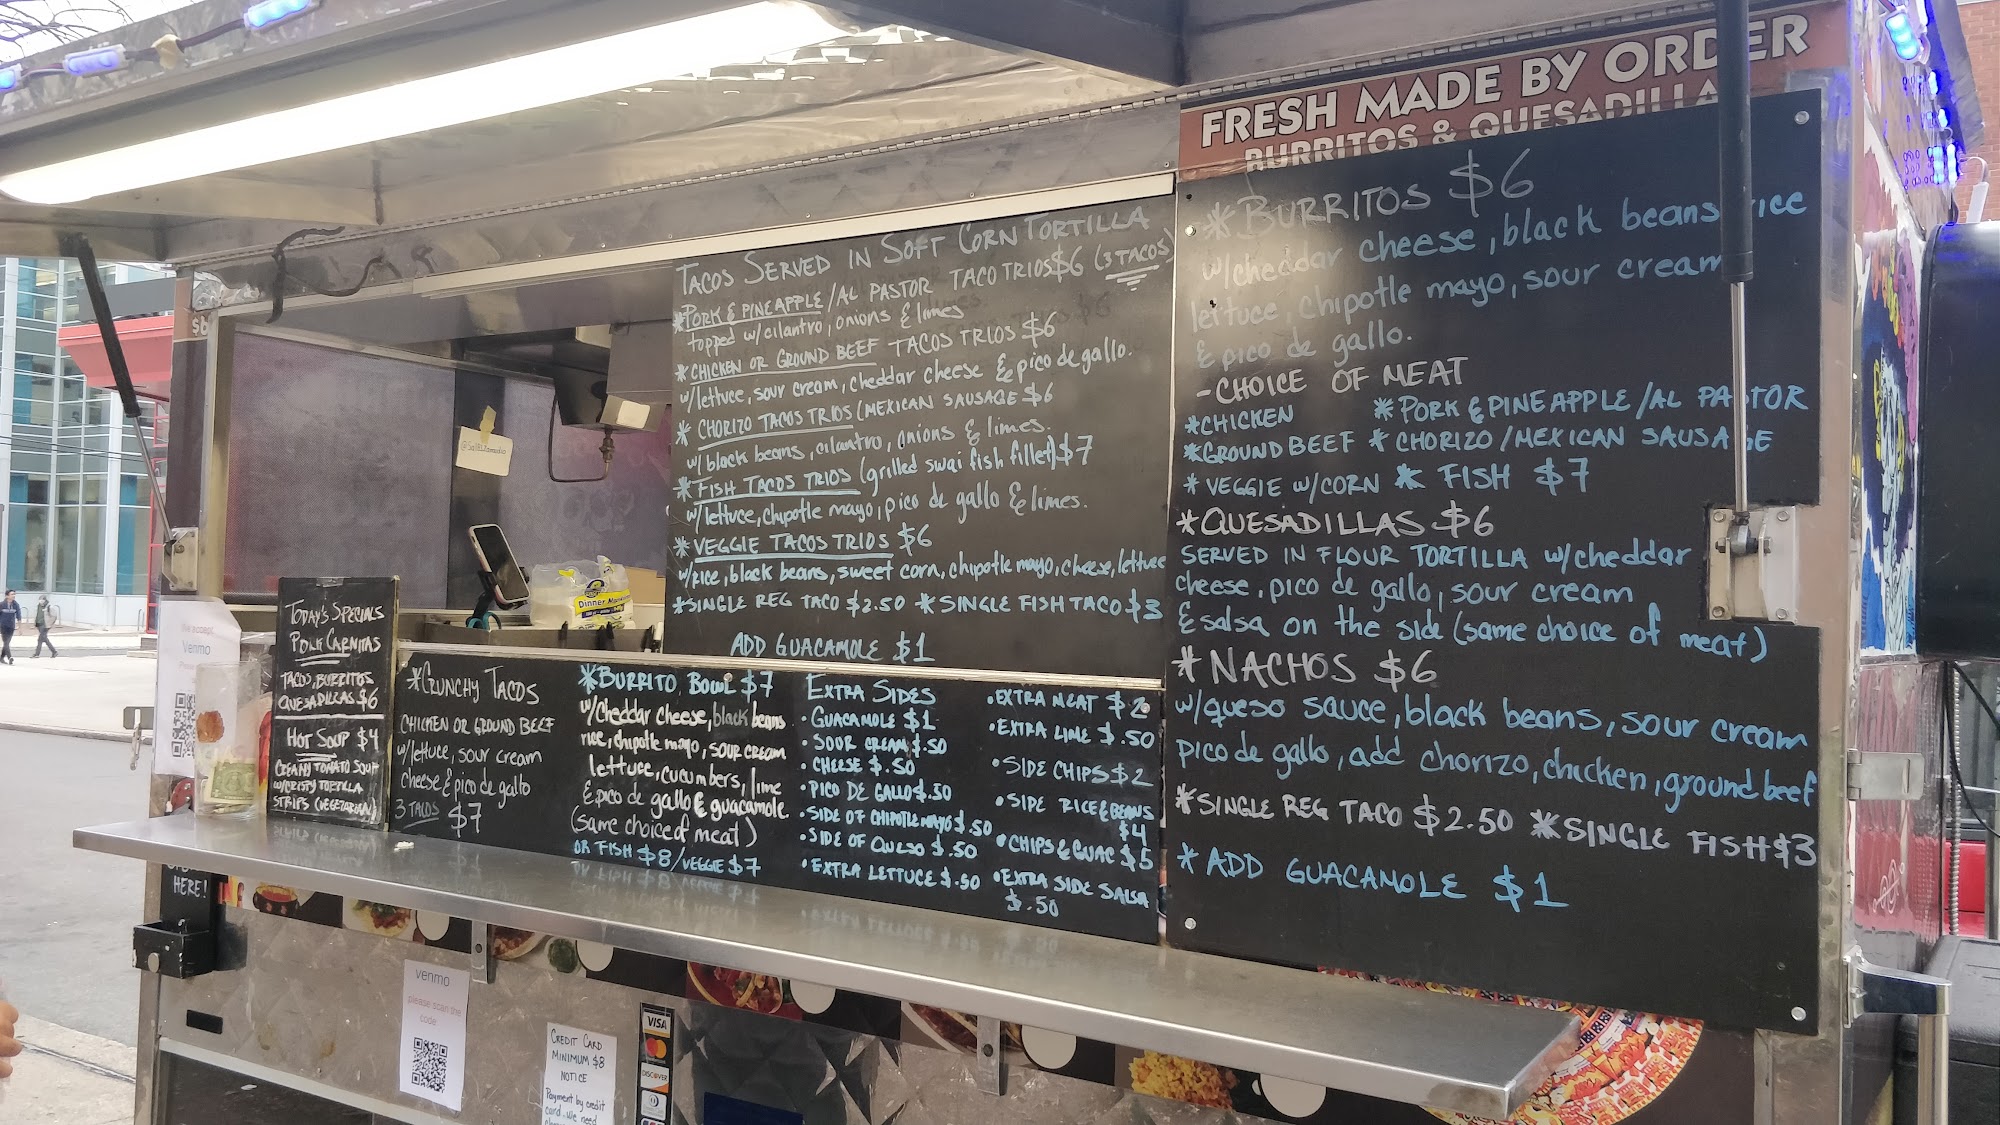 FRESH MADE BY ORDER
BURRITOS & QUESADILLA
TACOS SERVED IN SOFT CORN TORTILLA
*PORK & PINEAPPLE/AL PASTOR TACO TRIOS $6 (3 TACOS)
topped w/cilantro, onions & limes
*CHICKEN OR GROUND BEEF TACOS TRIOS $6
w/lettuce, sour cream, cheddar cheese & pico de gallo.
* CHORIZO TACOS TRIOS (MEXICAN SAUSAGE $6
w/black beans, cilantro, onions & limes.
*FISH TACOS TRIOS (grilled swai fish fillet) $7
w/lettuce, chipotle mayo, pico de gallo & limes.
*VEGGIE TACOS TRIOS $6
w/rice, black beans, sweet corn, chipotle mayo, cheese, lettuce
*SINGLE REG TACO $2.50 *SINGLE FISH TACO $3
ADD GUACAMOLE $1
*BURRITOS $6
w/cheddar cheese, black beans rice
lettuce, chipotle mayo, sour cream
& pico de gallo.
-CHOICE OF MEAT
*CHICKEN *PORK & PINEAPPLE/AL PASTOR
*GROUND BEEF *CHORIZO/MEXICAN SAUSAGE
* VEGGIE W/CORN * FISH $7
*QUESADILLAS $6
SERVED IN FLOUR TORTILLA w/cheddar
cheese, pico de gallo, sour cream
& salsa on the side (same choice of meat)
*NACHOS $6
w/queso sauce, black beans, sour cream
pico de gallo, add chorizo, chicken, ground beef
*SINGLE REG TACO $2.50 *SINGLE FISH $3
*ADD GUACAMOLE $1
@SolElCamedia
Dinner
TODAY'S SPECIALS
PORK CARNITAS
TACOS, BURRITOS
QUESADILLAS $6
HOT SOUP $4
CREAMY TOMATO SOUP
W/CRISPY TORTILLA
STRIPS (VEGETARIAN)
*CRUNCHY TACOS
CHICKEN OR GROUND BEEF
w/lettuce, sour cream
cheese & pico de gallo
3 TACOS $7
*BURRITO BOWL $7
w/cheddar cheese, black beans
rice, chipotle mayo, sour cream
lettuce, cucumbers, lime
& pico de gallo & guacamole
(same choice of meat)
OR FISH $8/VEGGIE $7
EXTRA SIDES
•GUACAMOLE $1
•SOUR CREAM $.50
•CHEESE $.50
•PICO DE GALLO $.50
•SIDE OF CHIPOTLE MAYO $.50
•SIDE OF QUESO $.50
•EXTRA LETTUCE $.50
•EXTRA MEAT $2
•EXTRA LIME $.50
•SIDE CHIPS $2
•SIDE RICE & BEANS
$4
•CHIPS & GUAC $5
•EXTRA SIDE SALSA
$.50
We accept
Venmo
HERE!
venmo
please scan the
code
CREDIT CARD
MINIMUM $8
NOTICE
Payment by credit
card. We need
VISA
DISCOVER